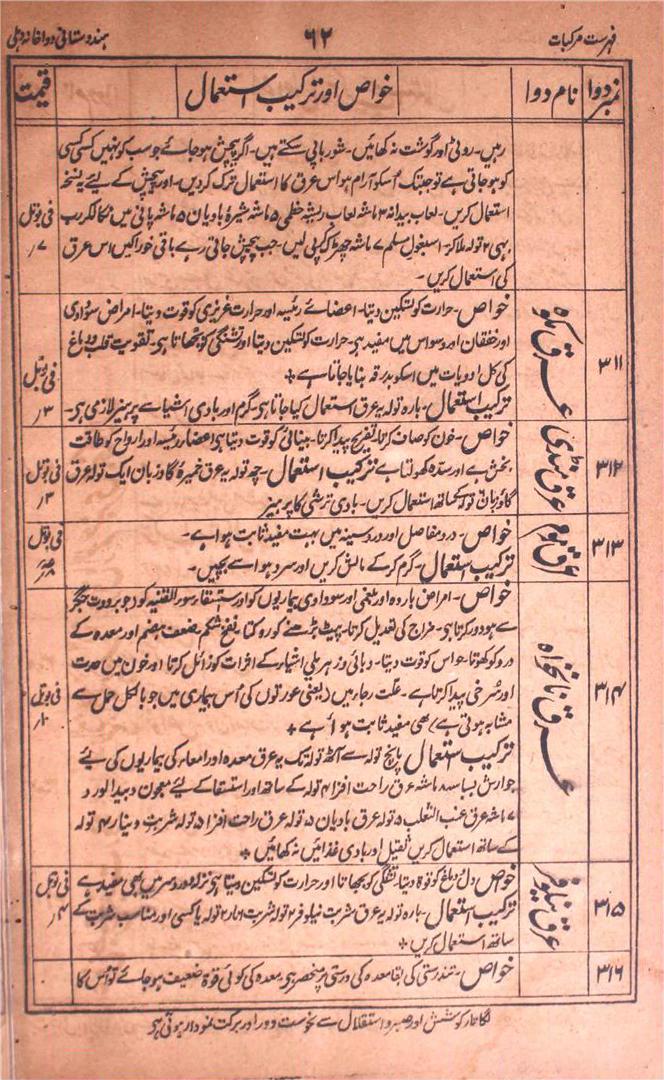 فہرست مرکبات ۶۲ ہندوستانی دواخانہ دہلی
نمبر دوا نام دوا خواص اور ترکیب استعمال قیمت
رہیں۔ روٹی اور گوشت نہ کھائیں۔ شوربا پی سکتے ہیں۔ اگر پیچش ہو جائے جو سب کو نہیں کسی کسی
کو ہو جاتی ہے تو جبتک اُسکو آرام ہو اس عرق کا استعمال ترک کر دیں۔ اور پیچش کے لئے یہ نسخہ
استعمال کریں۔ لعاب بیدانہ ۳ ماشہ لعاب ریشہ خطمی ۵ ماشہ شیرۂ بادیان ۵ ماشہ پانی میں نکالکر رب
بہی ۲ تولہ ملاکر۔ اسبغول مسلم ۷ ماشہ چھڑک کر پی لیں۔ جب پیچش جاتی رہے باقی خوراکیں اس عرق
کی استعمال کریں۔
فی بوتل
۷ر
۳۱۱ عرق مکوہ
خواص۔ حرارت کو تسکین دیتا۔ اعضائے رئیسہ اور حرارت غریزی کو قوت دیتا۔ امراض سوداوی
اور خفقان اور وسواس میں مفید ہی۔ حرارت کو تسکین دیتا اور تشنگی کو بجھاتا ہی۔ تقویت قلب و دماغ
کی کل ادویات میں اسکو بدرقہ بنایا جاتا ہے *
ترکیب استعمال۔ بارہ تولہ یہ عرق استعمال کیا جاتا ہی۔ گرم اور بادی اشیا سے پرہیز لازمی ہی۔
فی بوتل
۳ر
۳۱۲ عرق منڈی
خواص۔ خون کو صاف کرتا۔ تفریح پیدا کرتا۔ بینائی کو قوت دیتا ہی اعضاء رئیسہ اور ارواح کو طاقت
بخش ہے اور سدہ کھولتا ہے ترکیب استعمال۔ چھ تولہ یہ عرق خمیرہ گاؤ زبان ایک تولہ عرق
گاؤ زبان تولہ کے ساتھ استعمال کریں۔ بادی ترشی کا پرہیز
فی بوتل
۳ر
۳۱۳ عرق
خواص۔ درد مفاصل اور درد سینہ میں بہت مفید ثابت ہوا ہے۔
ترکیب استعمال۔ گرم کر کے مالش کریں اور سرد ہوا سے بچیں۔
فی بوتل
۳۱۴ عرق نانخواہ
خواص۔ امراض باردہ اور بلغمی اور سوداوی بیماریوں کو اور استسقاء سوء القنیہ کو (جو برودت جگر
سے ہو دور کرتا ہی۔ مزاج کی تعدیل کرتا۔ پیٹ بڑھنے کو روکتا۔ نفخ شکم ضعف ہضم اور معدہ کے
درد کو کھوتا۔ حواس کو قوت دیتا۔ وبائی و زہریلی اشیاء کے اثرات کو زائل کرتا اور خون میں حدت
اور سُرخی پیدا کرتا ہے۔ علت رجا میں (یعنی عورتوں کی اُس بیماری میں جو بالکل حمل سے
مشابہ ہوتی ہے) بھی مفید ثابت ہوا ہے *
ترکیب استعمال پانچ تولہ سے آٹھ تولہ تک یہ عرق معدہ اور امعاء کی بیماریوں کی لیے
جوارش بسباسہ ماشہ عرق راحت افزا ۴ تولہ کے ساتھ اور استسقا کے لئے معجون دبیدالورد
۷ ماشہ عرق عنب الثعلب ۵ تولہ عرق بادیان ۵ تولہ عرق راحت افزا ۵ تولہ شربت دینار ۴ تولہ
کے ساتھ استعمال کریں ثقیل اور بادی غذائیں نہ کھائیں *
فی بوتل
۱۰ر
۳۱۵ عرق نیلوفر
خواص دل و دماغ کو قوۃ دیتا۔ تشنگی کو بجھاتا اور حرارت کو تسکین دیتا ہی نزلہ اور دردسر میں بھی مفید ہے
ترکیب استعمال۔ بارہ تولہ یہ عرق شربت نیلوفر ۲ تولہ شربت انار ۲ تولہ یا کسی اور مناسب شربت کے
ساتھ استعمال کریں *
فی بوتل
۴ر
۳۱۶
خواص۔ تندرستی کی بقا معدہ کی درستی پر منحصر ہی۔ معدہ کی کوئی قوۃ ضعیف ہو جائے تو اُس کا
لگاتار کوشش اور صبر و استقلال سے نحوست دور اور برکت نمودار ہوتی ہی